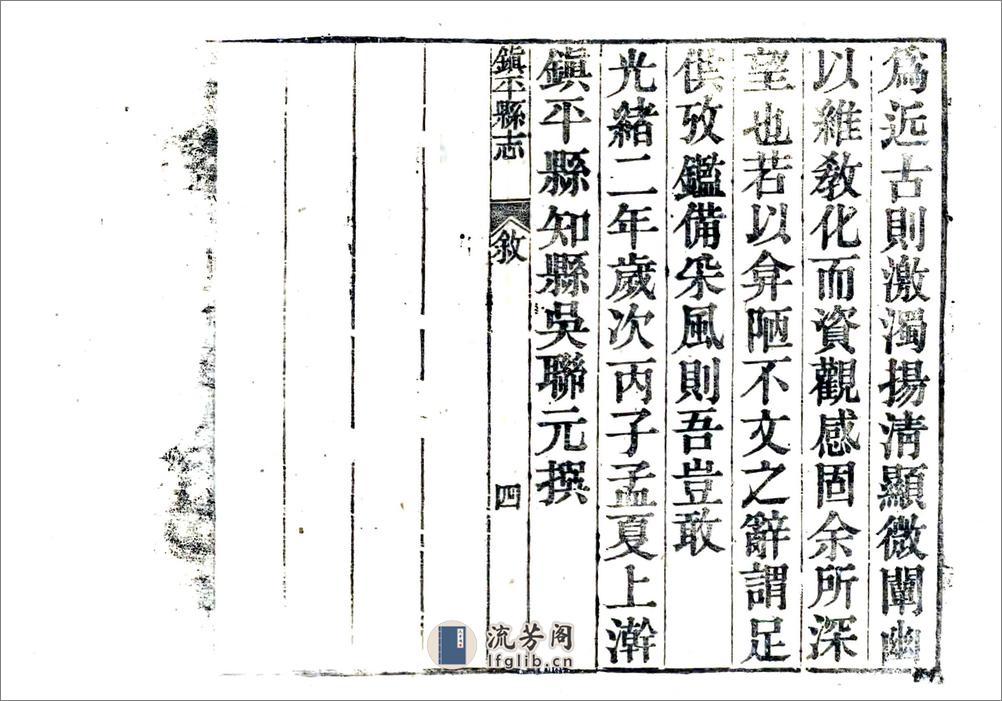 爲近古則激濁揚淸顯微闡幽
以維敎化而資觀感固余所深
望也若以弇陋不文之辭謂足
供攷鑑備采風則吾豈敢
光緖二年歲次丙子孟夏上澣
鎭平縣知縣吳聯元撰
鎭平縣志
敘
四
流芳阁
lfglib.cn